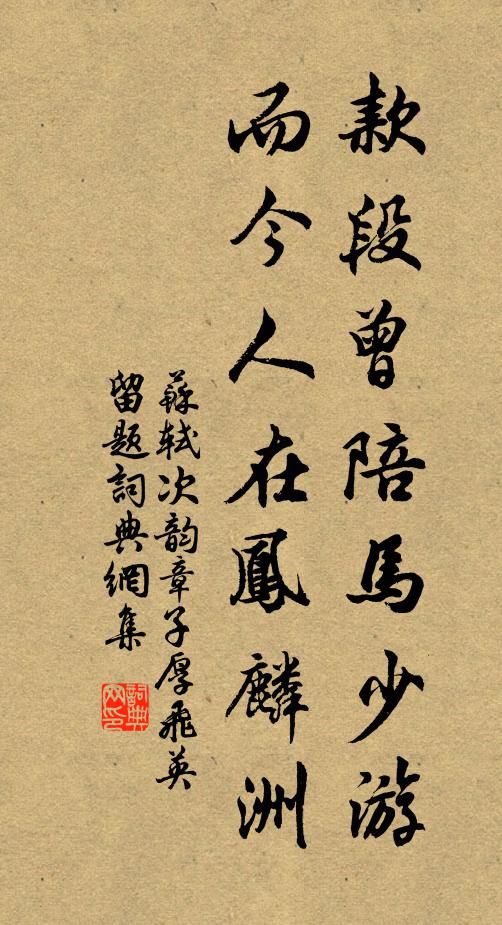 款段曾陪馬少游
而今人在鳳麟洲
蘇軾次韵章子厚飛英
留題詞典網集
詞典
网印